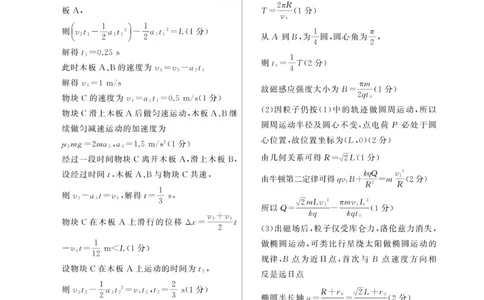 板 A,
则(v₂t₁-\frac{1}{2}a₂t₁²)-\frac{1}{2}a₁t₁²=L(1 分)
解得 t₁=0.25 s
此时木板 A、B 的速度为 v₃=v₂-a₂t₁
解得 v₃=1 m/s
物块 C 的速度为 v₄=a₁t₁=0.5 m/s(1 分)
物块 C 滑上木板 A 后做匀速运动,木板 A、B 继
续做匀减速运动的加速度为
μ₂mg=2ma₃,a₃=1.5 m/s²(1 分)
经过一段时间物块 C 离开木板 A,滑上木板 B,
设经过时间 t,木板 A、B 与物块 C 共速,
则 v₃-a₃t=v₄,解得 t=\frac{1}{3} s,
物块 C 在木板 A 上滑行的位移 Δx=\frac{v₃+v₄}{2}t
-v₄t=\frac{1}{12} m<L(1 分)
设物块 C 在木板 A 上运动的时间为 t₂,
则 v₃t₂-\frac{1}{2}a₃t₂²=v₄t₂,t₂=\frac{2}{3} s(1 分)
T=\frac{2πR}{v₀}(1 分)
从 A 到 B,为\frac{1}{4}圆,圆心角为\frac{π}{2},
则 t₀=\frac{1}{4}T(2 分)
故磁感应强度大小为 B=\frac{πm}{2qt₀}(1 分)
(2)因粒子仍按(1)中的轨迹做圆周运动,所以
圆周运动半径及圆心不变,点电荷 P 必处于圆
心位置,故位置坐标为(L,0)(2 分)
由几何关系可得 R=√2L(1 分)
由牛顿第二定律可得 qv₁B+\frac{kqQ}{R²}=m\frac{v₁²}{R}(2 分)
所以 Q=\frac{√2mLv₁²}{kq}-\frac{πmv₁L²}{kqt₀}(1 分)
(3)出磁场后,粒子仅受库仑力,洛伦兹力消失,
做椭圆运动,可类比行星绕太阳做椭圆运动的
规律,B 点为近日点,首次与 B 点速度方向相
反是远日点
椭圆半长轴 a=\frac{R+r₀}{2}=\frac{√2L+r₀}{2}(2 分)